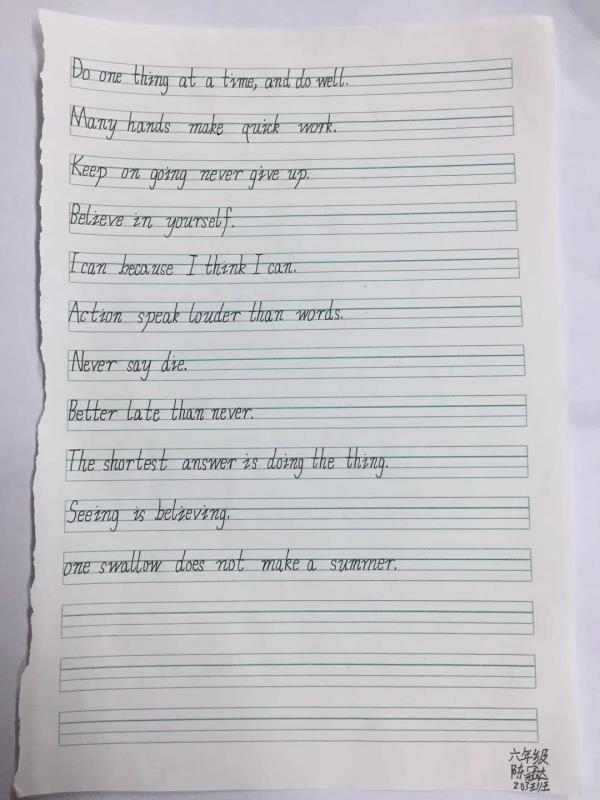 Do one thing at a time, and do well.
Many hands make quick work.
Keep on going never give up.
Believe in yourself.
I can because I think I can.
Action speak louder than words.
Never say die.
Better late than never.
The shortest answer is doing the thing.
Seeing is believing.
one swallow does not make a summer.
六年级
陈冠达